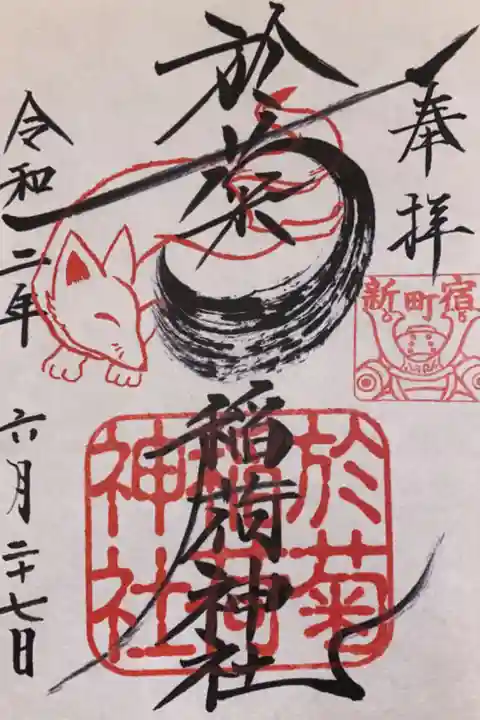 奉拝
新町宿
於菊
稲荷神社
於菊
稲荷
神社
令和二年
六月二十七日